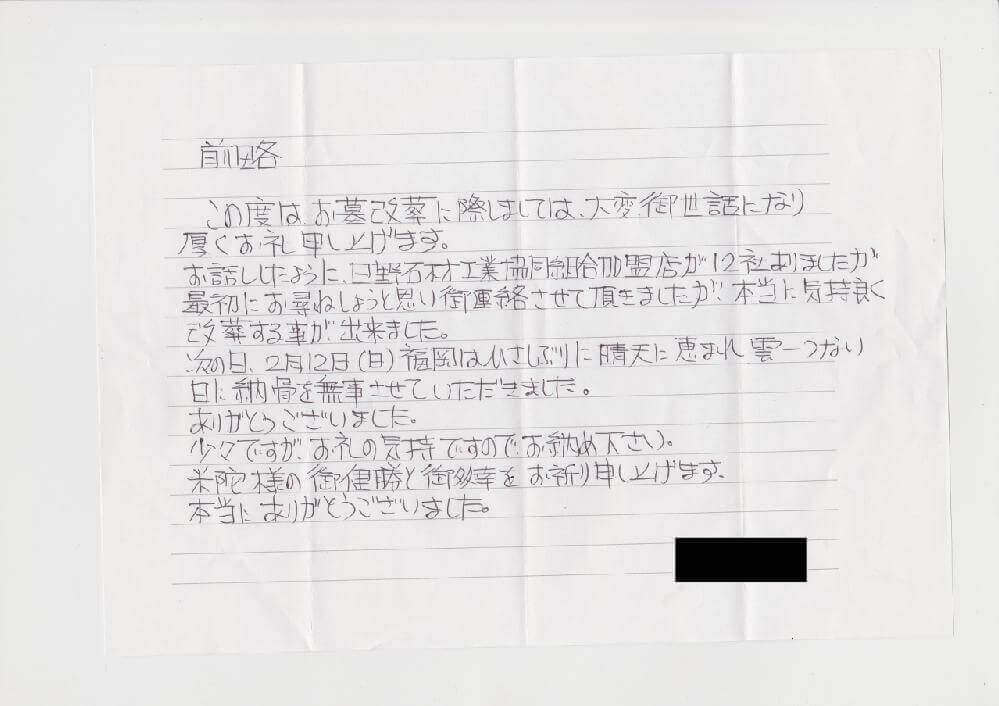 前略
この度は、お墓改葬に際しましては、大変御世話になり
厚くお礼申し上げます。
お話ししたように、日野石材工業協同組合加盟店が12社ありましたが
最初にお尋ねしようと思い御連絡させて頂きましたが、本当に気持良く
改葬する事が出来ました。
次の日、2月12日(日)福岡はひさしぶりに晴天に恵まれ雲一つない
日に納骨を無事させていただきました。
ありがとうございました。
少々ですが、お礼の気持ですのでお納め下さい。
米陀様の御健勝と御多幸をお祈り申し上げます。
本当にありがとうございました。